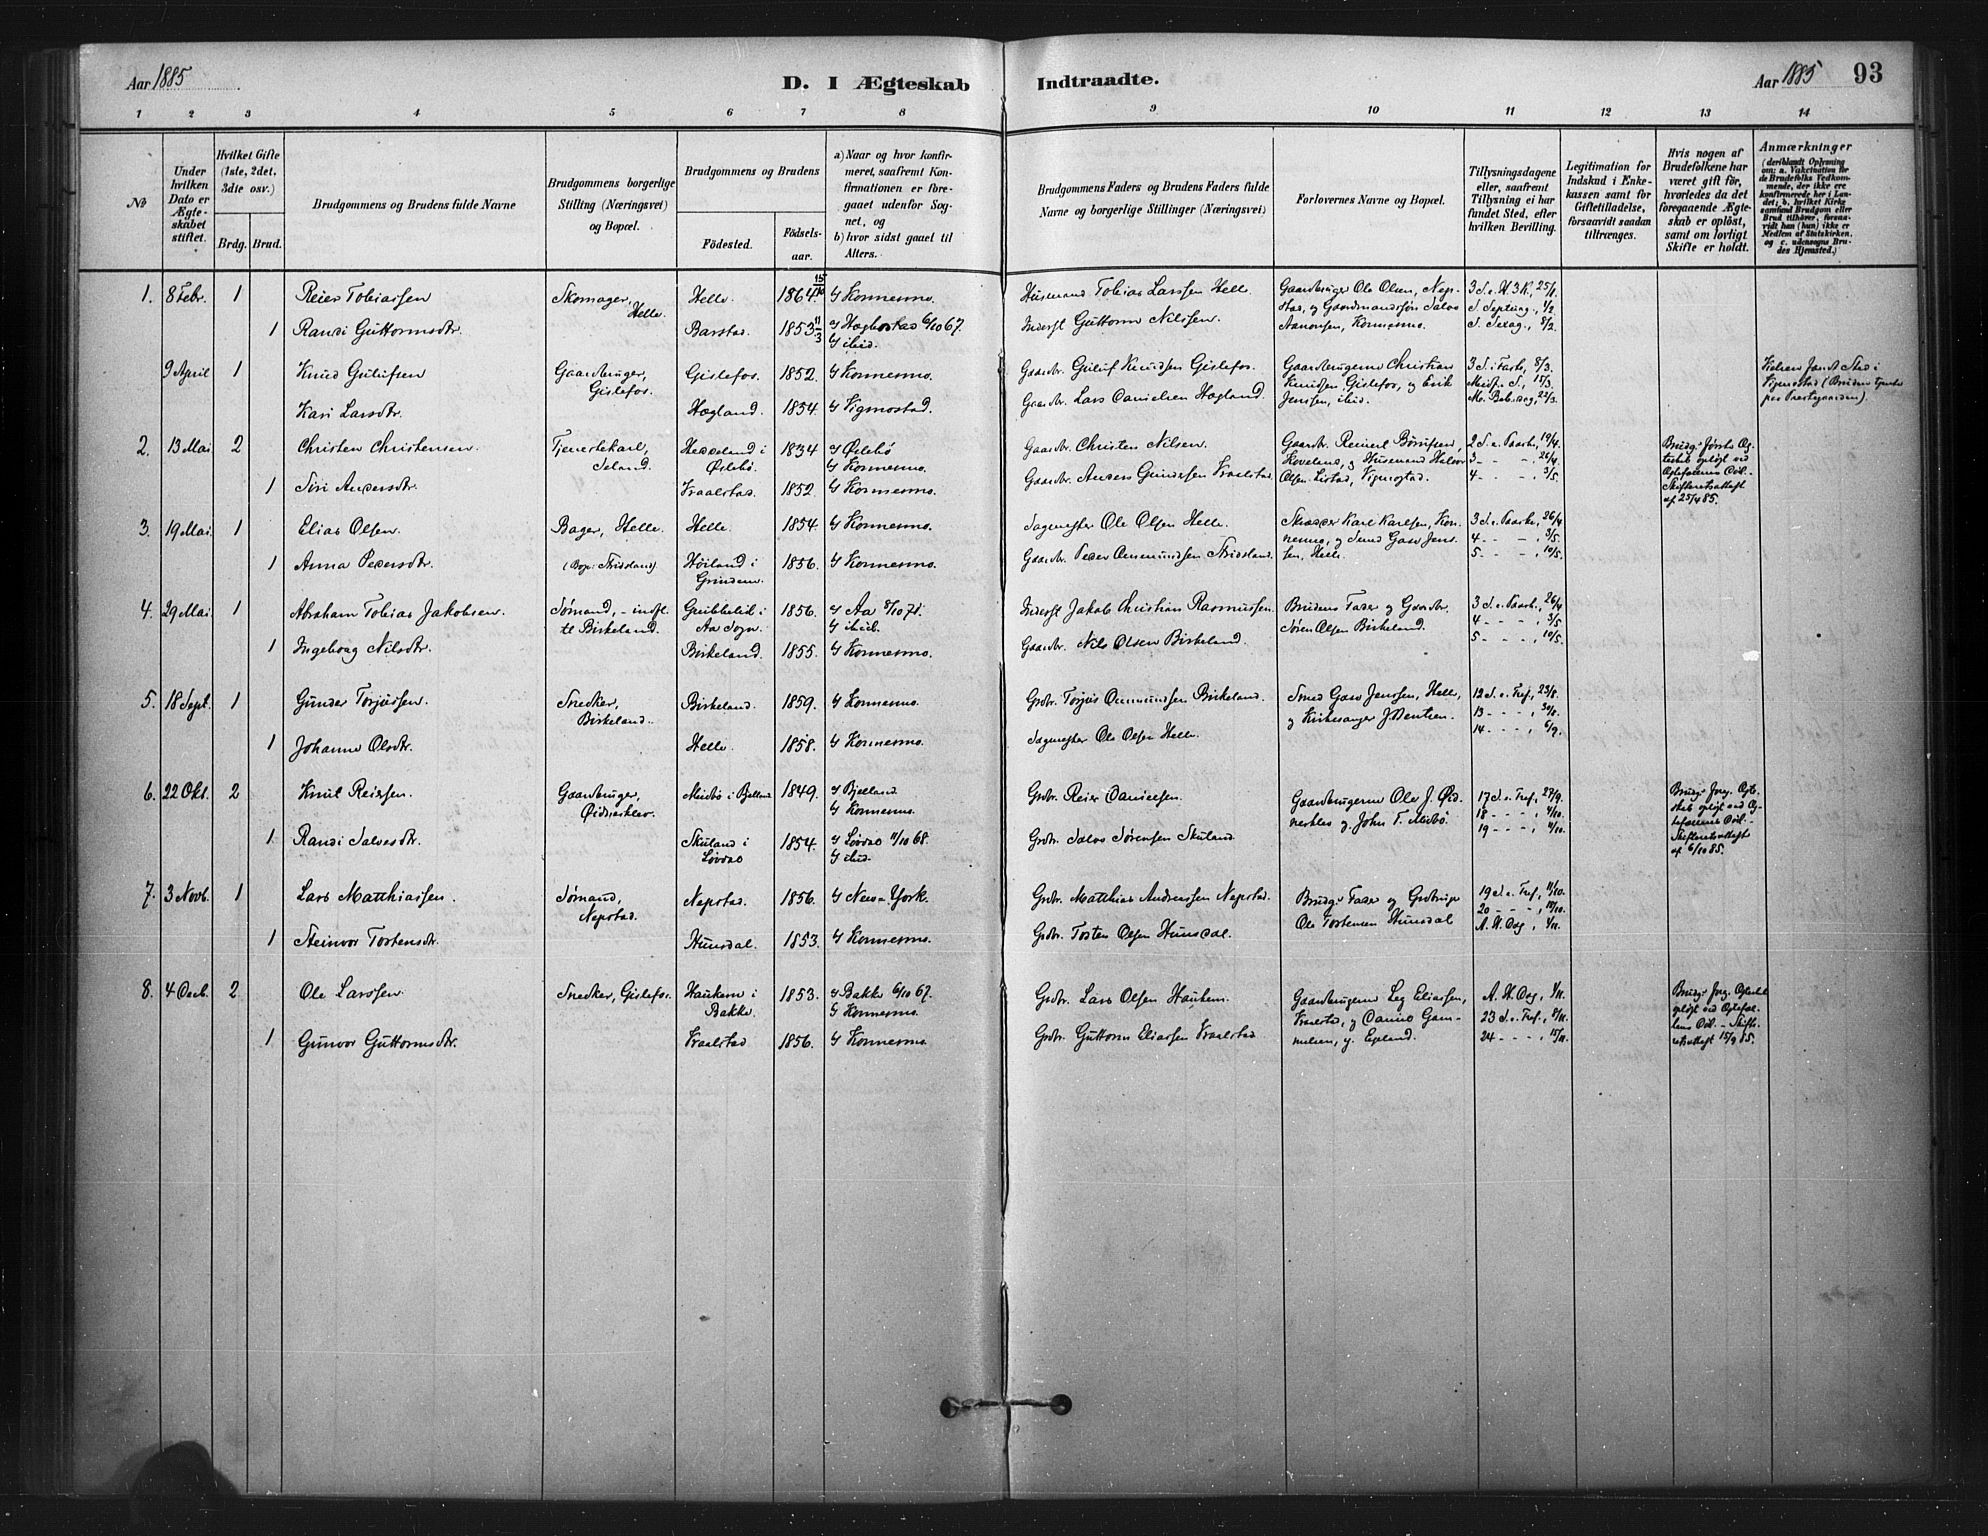 Aar 1885
D. I Ægteskab Indtraadte.
Aar 1885 93
1 2 3 4 5 6 7 8 9 10 11 12 13 14
No
Under hvilken Dato er Ægteskabet stiftet.
Hvilket Gifte (1ste, 2det, 3die osv.)
Brdg. Brud.
Brudgommens og Brudens fulde Navne
Brudgommens borgerlige Stilling (Næringsvei) og Bopæl.
Brudgommens og Brudens
Fødested.
Fødselsaar.
a) Naar og hvor konfirmeret, saafremt Konfirmationen er foregaaet udenfor Sognet, og
b) hvor sidst gaaet til Alters.
Brudgommens Faders og Brudens Faders fulde Navne og borgerlige Stillinger (Næringsvei)
Forlovernes Navne og Bopæl.
Tillysningsdagene eller, saafremt Tillysning ei har fundet Sted, efter hvilken Bevilling.
Legitimation for Indskud i Enkekassen samt for Giftetilladelse, forsaavidt saadan tiltrænges.
Hvis nogen af Brudefolkene har været gift før, hvorledes da det foregaaende Ægteskab er opløst, samt om lovligt Skifte er holdt.
Anmærkninger
(deriblandt Oplysning om: a. Vakcination for de Brudefolks Vedkommende, der ikke ere konfirmerede her i Landet; b. hvilket Kirkesamfund Brudgom eller Brud tilhører, forsaavidt han (hun) ikke er Medlem af Statskirken, og c. udensogns Brudes Hjemsted.)
1. 8 Febr. 1 Reier Tobiassen Skomager, Helle. Helle. 1864 15/10 b/ Konnesmo. Husmand Tobias Larssen Helle Gaardbruger Ole Olsen, Nepstad, og Gaardmandssøn Salve Aanonsen, Konnesmo. 3 S. e. H3K., 25/1. S. Septuag., 1/2 S. Sexag., 8/2.
1 Randi Guttormsdtr. Barstad. 1853 11/3 a/ Hægbostad 6/10 67. b/ ibid. Inderst Guttorm Nilssen.
9 April 1 Knud Gulufsen Gaardbruger, Gislefos. Gislefos. 1852. b/ Konnesmo. Gaardbr. Guluf Knudsen Gislefos. Gaardbrugerne Christian Knudsen, Gislefos, og Erik Jenssen, ibid. 3 S. i Faste, 8/3. Midf. S., 15/3. M. Bebudag, 22/3.
Kari Larsdtr. Høgland. 1854. b/ Vigmostad. Gaardbr. Lars Danielsen Høgland.
2. 13 Mai 2 Christen Christensen Tjenestekarl, Iseland. Hesseland i Øslebø. 1834 a/ Øslebø b/ Konnesmo. Gaardbr. Christen Nilsen. 2 S. e. Paaske, 19/4. 3 - - -, 26/4 4 - - -, 3/5.
af 25/4 85.
1 Siri Andersdtr. Kvaalstad. 1852. b/ Konnesmo. Gaardbr. Anders Gundersen Kvaalstad.
3. 19 Mai. 1 Elias Olsen. Bager, Helle. Helle. 1854. b/ Konnesmo. Sagmester Ole Olsen Helle. Skrædder Karl Karlsen, Konnesmo, og Smed Gasv Jenssen, Helle. 3 S. e. Paaske, 26/4 4 - - -, 3/5. 5 - - -, 10/5.
1 Anna Pedersdtr. (Bop: Fridsland) Høiland i Grindem. 1856. b/ Konnesmo. Gaardbr. Peder Ommundsen Fridsland.
4. 29 Mai 1 Abraham Tobias Jakobsen. Sømand, - indfl. til Birkeland. Gribbelid i Aa Sogn. 1856. a/ Aa 8/10 71. b/ ibid. Inderst Jakob Christian Rasmussen. Brudens Fader og Gaardbr. Søren Olsen Birkeland. 3 S. e. Paaske, 26/4 4 - - -, 3/5 5 - - -, 10/5.
1 Ingeborg Nilsdtr. Birkeland. 1855. b/ Konnesmo. Gaardbr. Nils Olsen Birkeland.
5. 18 Sept. 1 Gunder Torjussen. Snedker, Birkeland. Birkeland. 1859. b/ Konnesmo. Grdbr. Torjus Ommundsen Birkeland. Smed Gasv Jenssen, Helle, og Kirkesanger J. Bentsen. 12 S. e. Tref., 23/8. 13 - - -, 30/8. 14 - - -, 6/9.
1 Johanne Olsdtr. Helle. 1858. b/ Konnesmo. Sagmester Ole Olsen Helle.
6. 22 Okt. 2 Knut Reiersen. Gaardbruger, Øidneskles. i Bjelland 1849. a/ Bjelland b/ Konnesmo. Grdbr. Reier Danielsen. Gaardbrugerne Ole J. Øidneskles og John T. 17 S. e. Tref., 27/9. 18 - - -, 4/10. 19 - - -, 11/10.
af 6/10 85.
1 Randi Salvesdtr. Skuland i Løvdal 1854. a/ Løvdal 11/10 68. b/ ibid. Grdbr. Salve Sørensen Skuland
7. 3 Novb. 1 Lars Matthiassen. Sømand, Nepstad. Nepstad. 1856. b/ New-York. Grdbr. Matthias Andreassen Nepstad. Brudgs Fader og Grdbruger Ole Torstensen Hunsdal 19 S. e. Tref., 11/10. 20 - - -, 18/10. A. H. Dag, 1/11.
1 Steinvor Torstensdtr. Hunsdal. 1853. b/ Konnesmo. Grdbr. Tosten Olsen Hunsdal.
8. 4 Decb. 2 Ole Larssen. Snedker, Gislefos. Haukem i Bakke. 1853. a/ Bakke 6/10 67. b/ Konnesmo. Grdbr. Lars Olsen Haukem. Gaardbrugerne Eliassen, Kvaalstad, og Egeland. A. H. Dag, 1/11. 23 S. e. Tref., 8/11. 24 - - -, 15/11.
15/9 85.
1 Gunvor Guttormsdtr. Kvaalstad 1856. b/ Konnesmo. Grdbr. Guttorm Eliassen Kvaalstad.